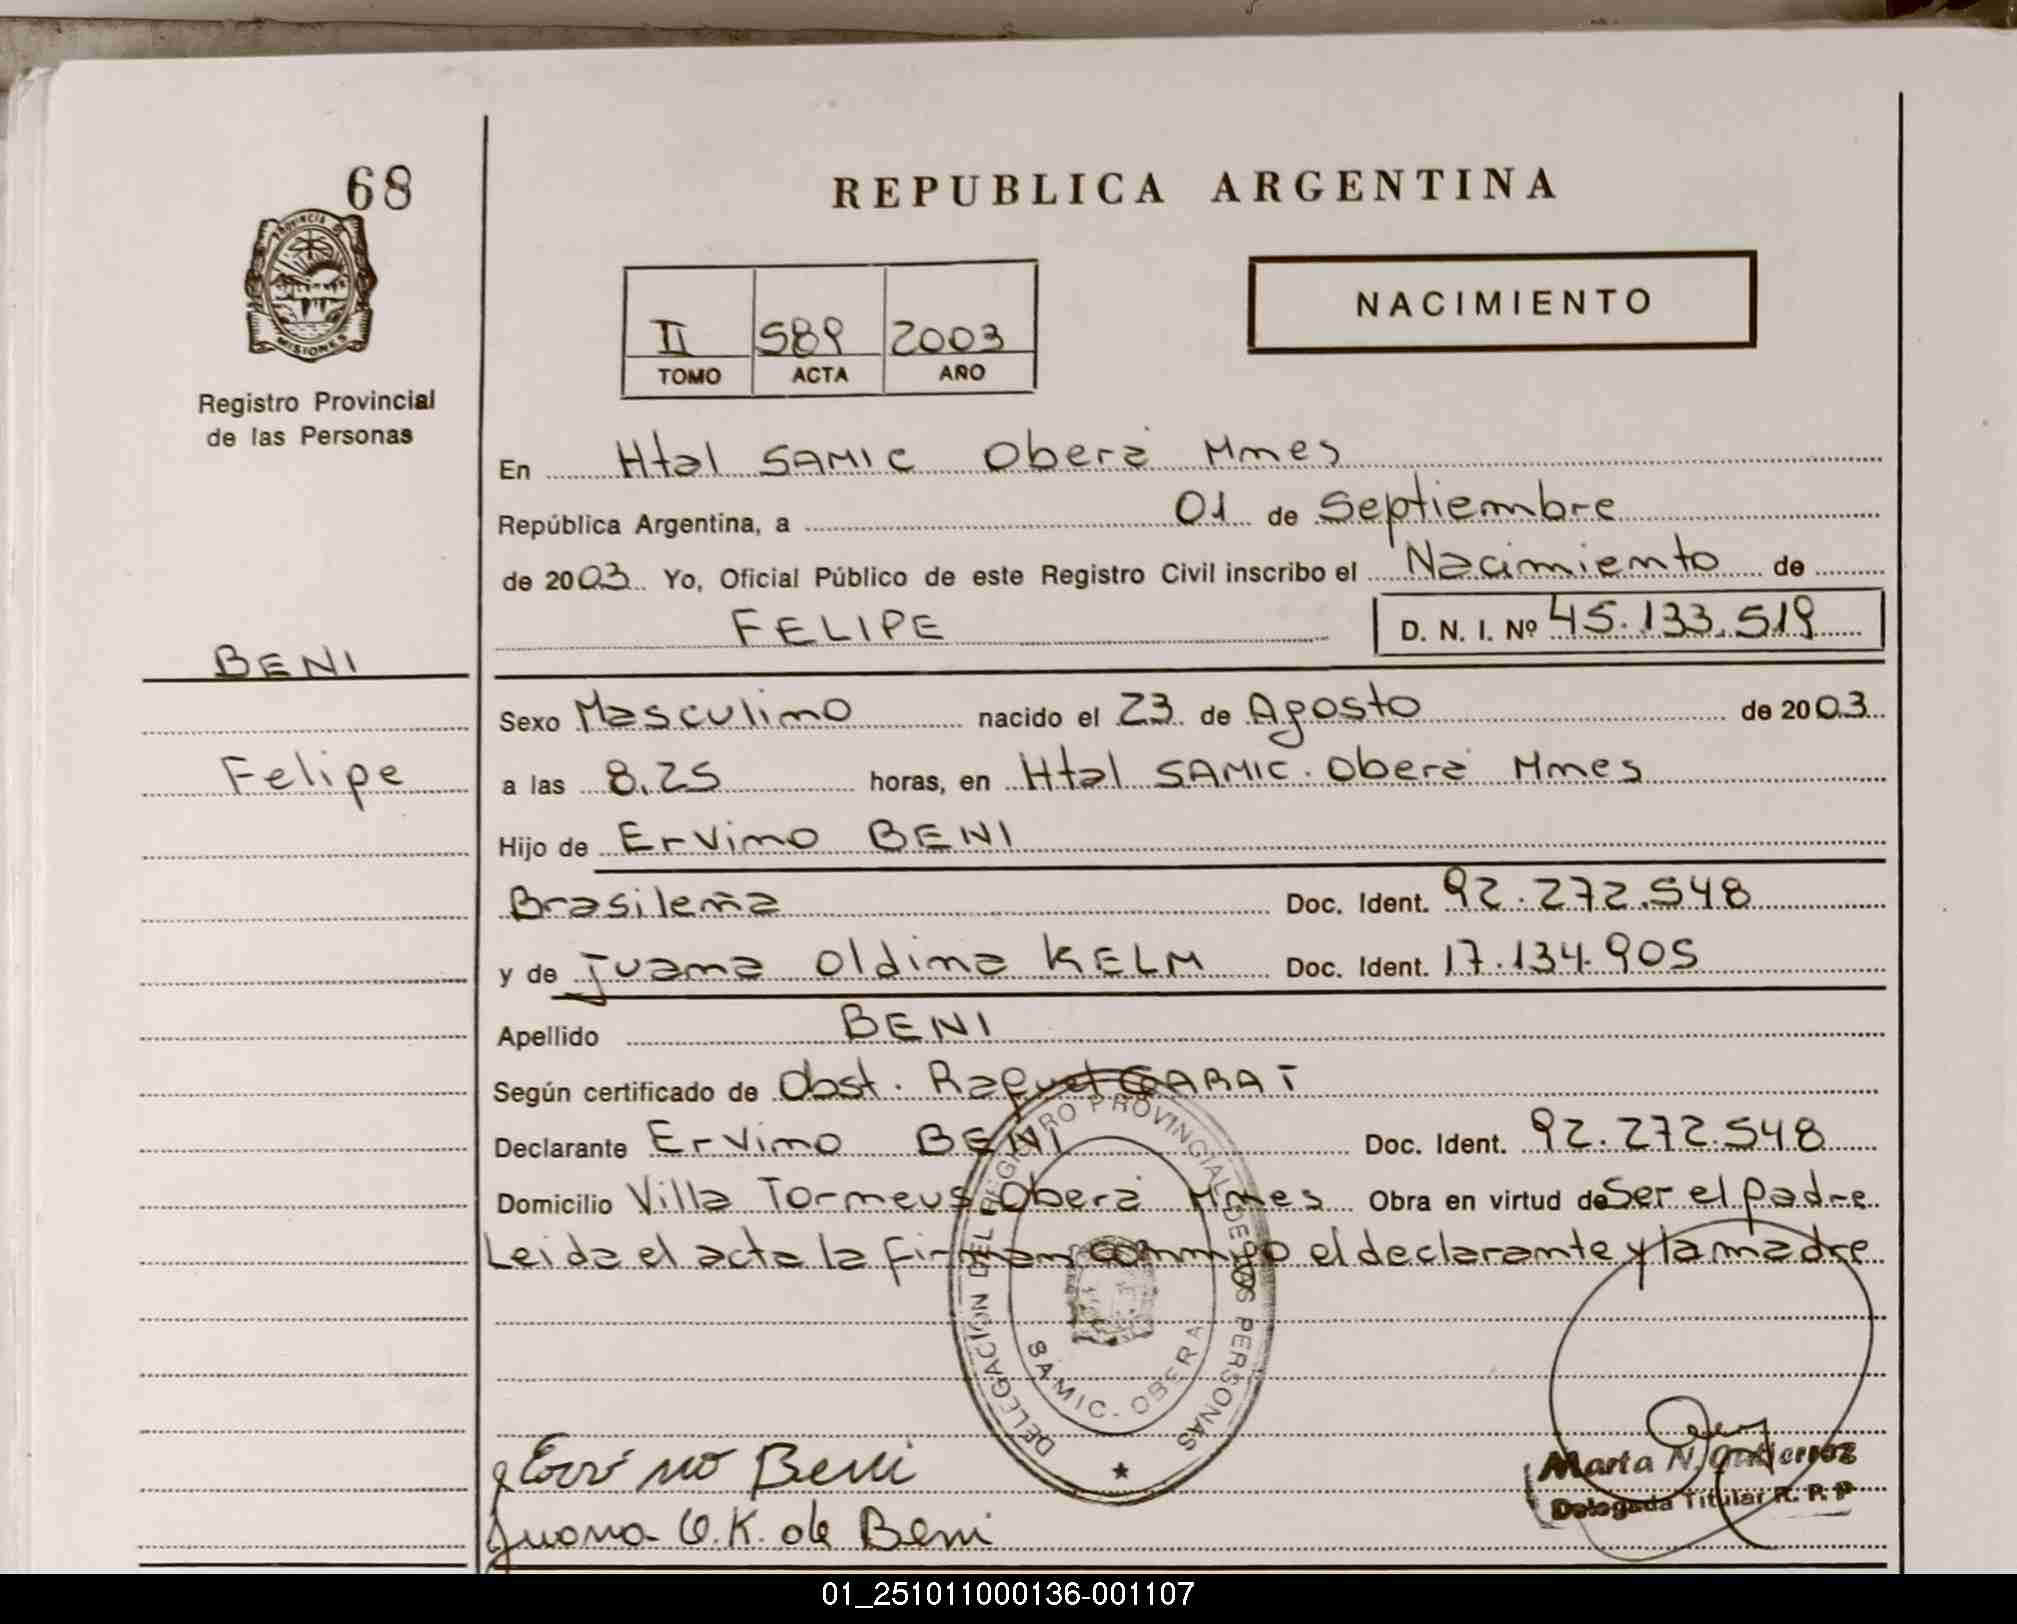 68
PROVINCIA DE
MISIONES
Registro Provincial
de las Personas
BENI
Felipe
REPUBLICA ARGENTINA
II 589 2003
TOMO ACTA AÑO
NACIMIENTO
En Htal SAMIC Oberá Mnes
República Argentina, a 01 de Septiembre
de 2003 Yo, Oficial Público de este Registro Civil inscribo el Nacimiento de
FELIPE D. N. I. Nº 45.133.519
Sexo Masculino nacido el 23 de Agosto de 2003
a las 8.25 horas, en Htal SAMIC. Oberá Mnes
Hijo de Ervino BENI
Brasileña Doc. Ident. 92.272.548
y de Juana Oldina KELM Doc. Ident. 17.134.905
Apellido BENI
Según certificado de Obst. Raquel GARAT
Declarante Ervino BENI Doc. Ident. 92.272.548
Domicilio Villa Torneus Oberá Mnes Obra en virtud de Ser el padre
Leida el acta la firman conmigo el declarante y la madre
DELEGACION DEL REGISTRO PROVINCIAL DE LAS PERSONAS
SAMIC - OBERA
Ervino Beni
Juana O.K. de Beni
Marta N. Gutierrez
Delegada Titular R. P. P
01_251011000136-001107